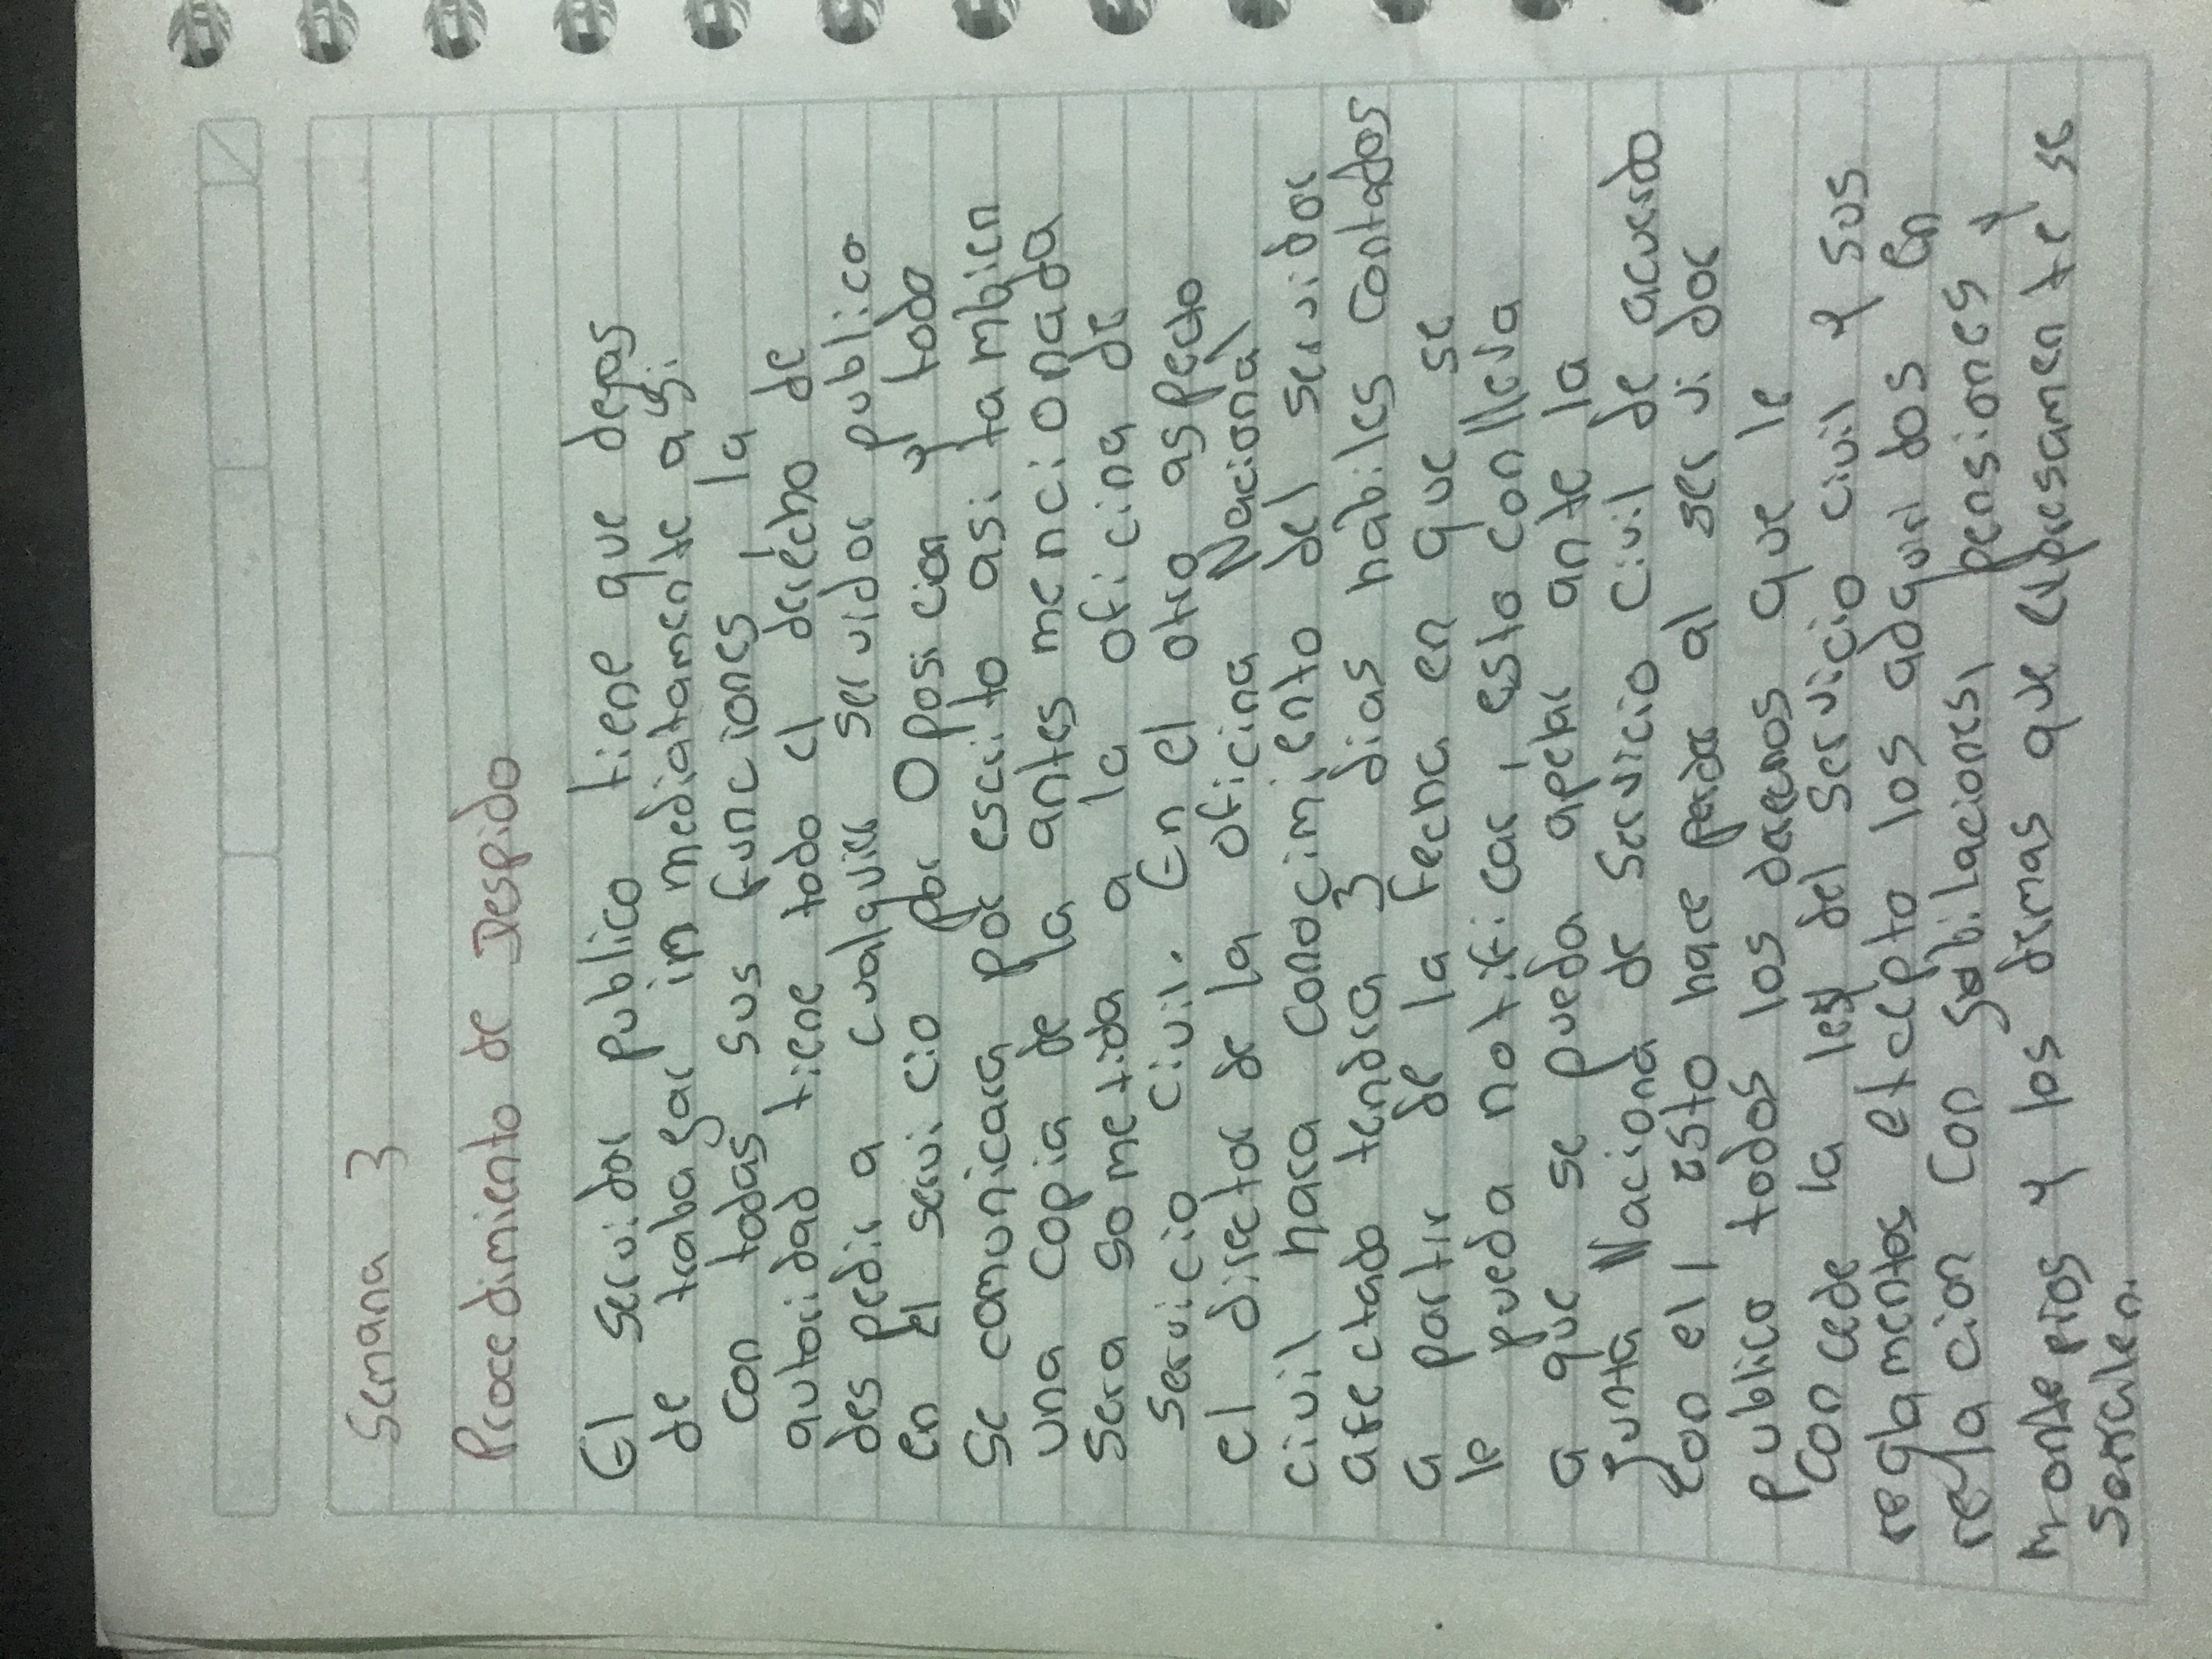 Semana 3
Procedimiento de Despido
El servidor publico tiene que degas
de trabagar inmediatamente asi
con todas sus funciones la
autoridad tiene todo el derecho de
des pedir a cualquier servidor publico
en El servicio por Oposicion y todo
Se comunicara por escrito asi tambien
una copia de la antes mencionada
Sera sometida a la oficina de
servicio civil. En el otro aspecto
el director de la oficina Nacional
civil hara conocimiento del servidor
afectado tendra 3 dias habiles contados
a partir de la fecha en que se
le pueda notificar, esto conlleva
a que se pueda apelar ante la
Junta Nacional de Servicio Civil de acuerdo
con el 1 esto hace perder al servidor
publico todos los derechos que le
Concede la ley del Servicio civil y sus
reglamentos excepto los adquiridos en
relacion con Jubilaciones, pensiones y
montepios y los demas que expresamente se
señalen.